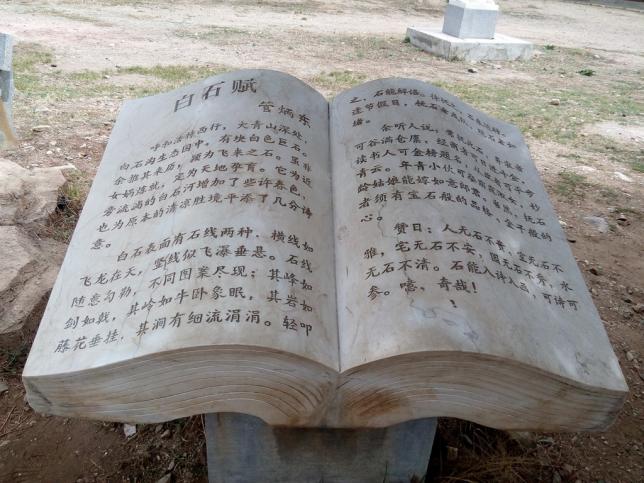 白石赋
管炳东
呼和浩特西行，大青山深处，
白石沟生态园中，有块白色巨石。
余推其来历，疑为飞来之石。虽非
女娲炼就，定为天地孕育。它为近
旁流淌的白石河增加了些许春色，
也为原本的清凉胜境平添了几分诗
意。
白石表面有石线两种，横线如
飞龙在天，竖线似飞瀑垂悬。石线
随意勾勒，不同图案尽现：其峰如
剑如戟，其岭如牛卧象眠，其岩如
藤花垂挂，其涧有细流涓涓。轻叩
之，石能解语。
逢节假日，抚石者
绪。
余听人说，常抚此石，
可谷满仓廪，经商者可日进斗金，
读书人可金榜题名，从政者可平步
青云。年青小伙可娶窈窕淑女，妙
龄姑娘能嫁如意郎君。当然，抚石
者须有宝石般的品格，金子般的
心。
赞曰：人无石不贵，室无石不
雅，宅无石不安，园无石不秀，水
无石不清。石能入诗入画，可诗可
参。噫，奇哉！
！